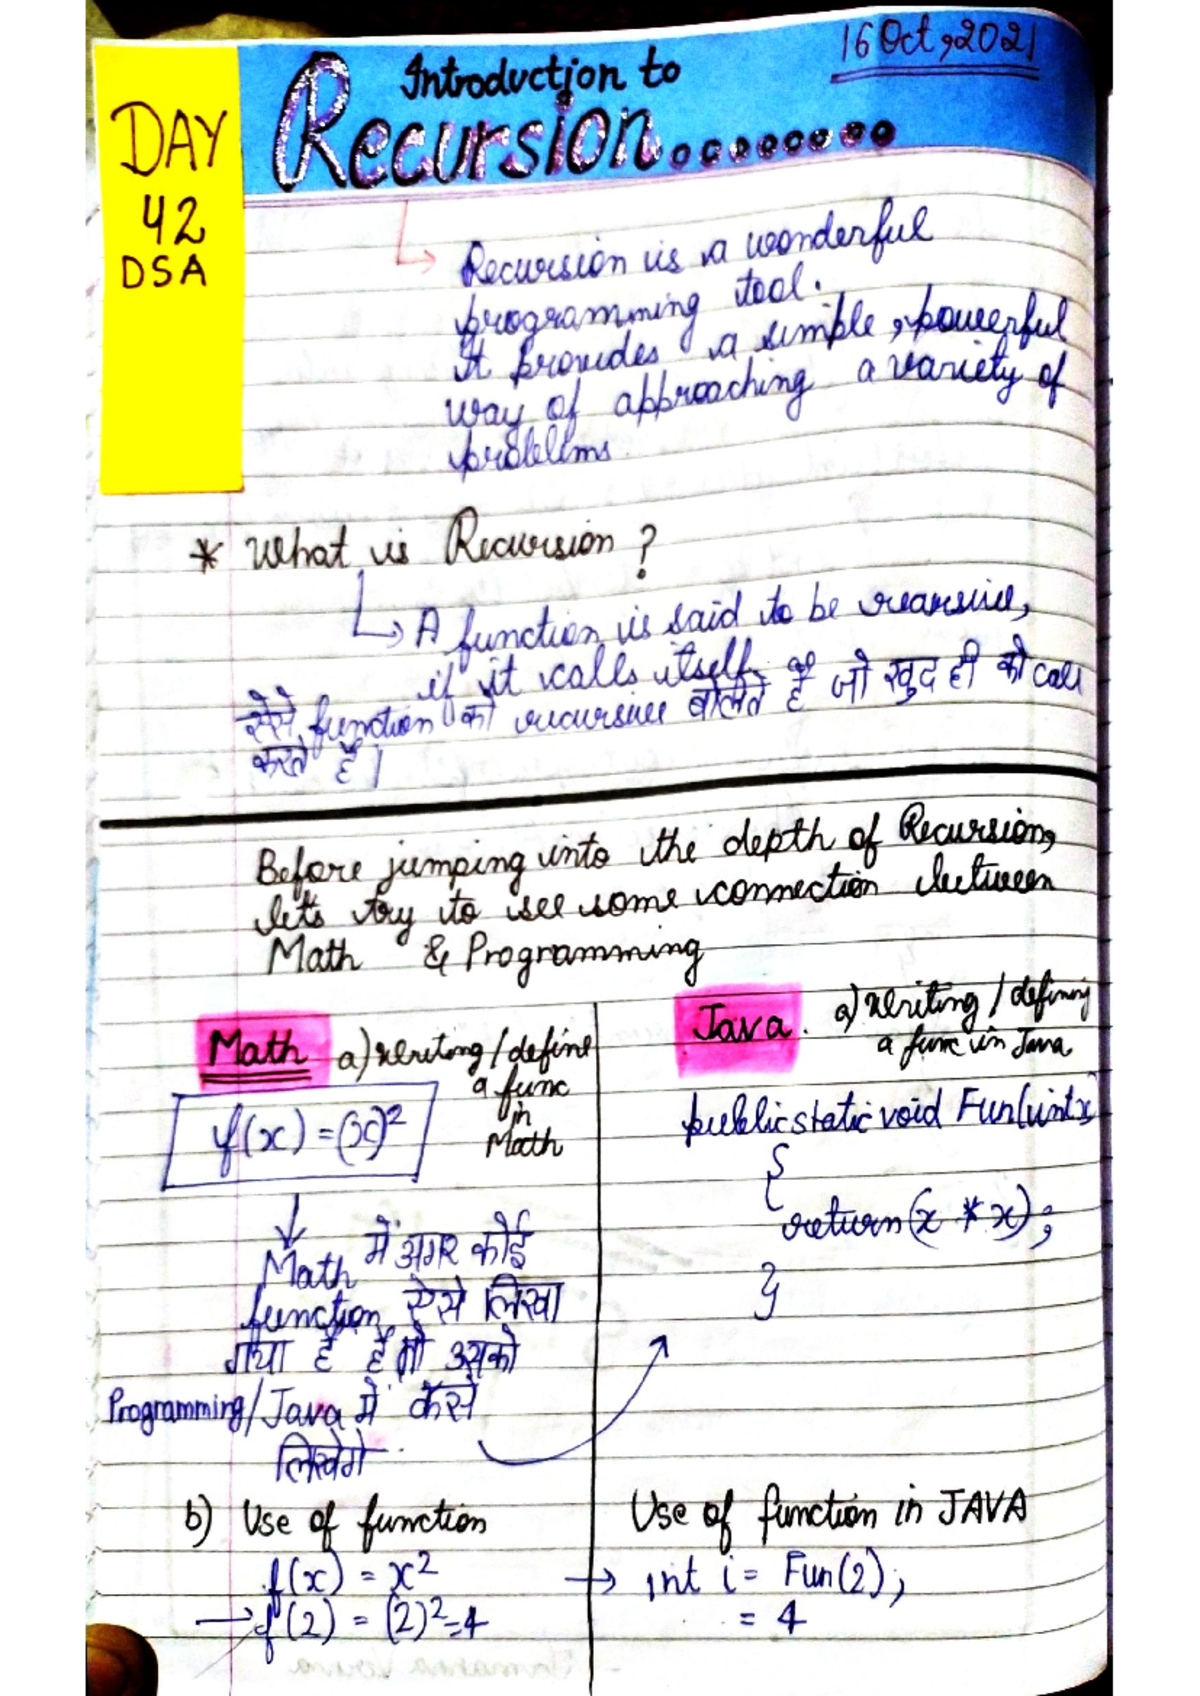 16 Oct, 2021
DAY
42
DSA
Introduction to
Recursion........
Recursion is a wonderful
programming tool.
It provides a simple, powerful
way of approaching a variety of
problems
* What is Recursion?
A function is said to be recursive,
if it calls itself.
ऐसे function को recursive बोलते हैं जो खुद ही को call
करते हैं।
Before jumping into the depth of Recursion,
let's try to see some connection between
Math & Programming
Math a) writing/define
a func
in
Math
f(x) = (x)²
Math में अगर कोई
function ऐसे लिखा
गया है तो उसको
Programming/Java में कैसे
लिखेगे
b) Use of function
f(x) = x²
→ f(2) = (2)² = 4
Java. a) writing/defining
a func in Java
public static void Fun(int x)
{
return (x * x);
}
Use of function in JAVA
→ int i = Fun(2);
= 4